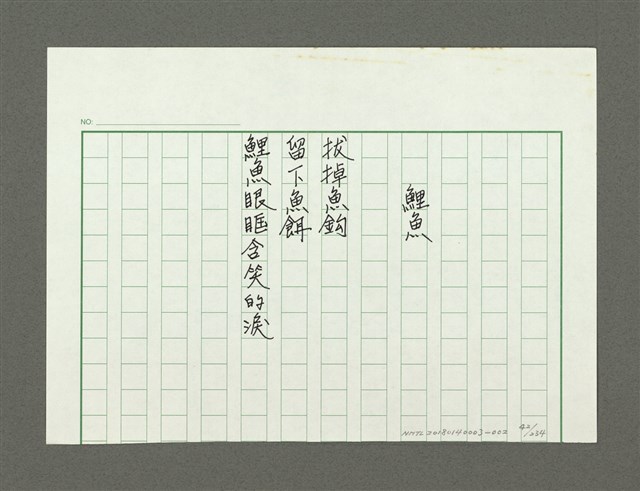 NO:
鯉魚
拔掉魚鈎
留下魚餌
鯉魚眼眶含笑的淚
NMTL20180140003-002
42/234